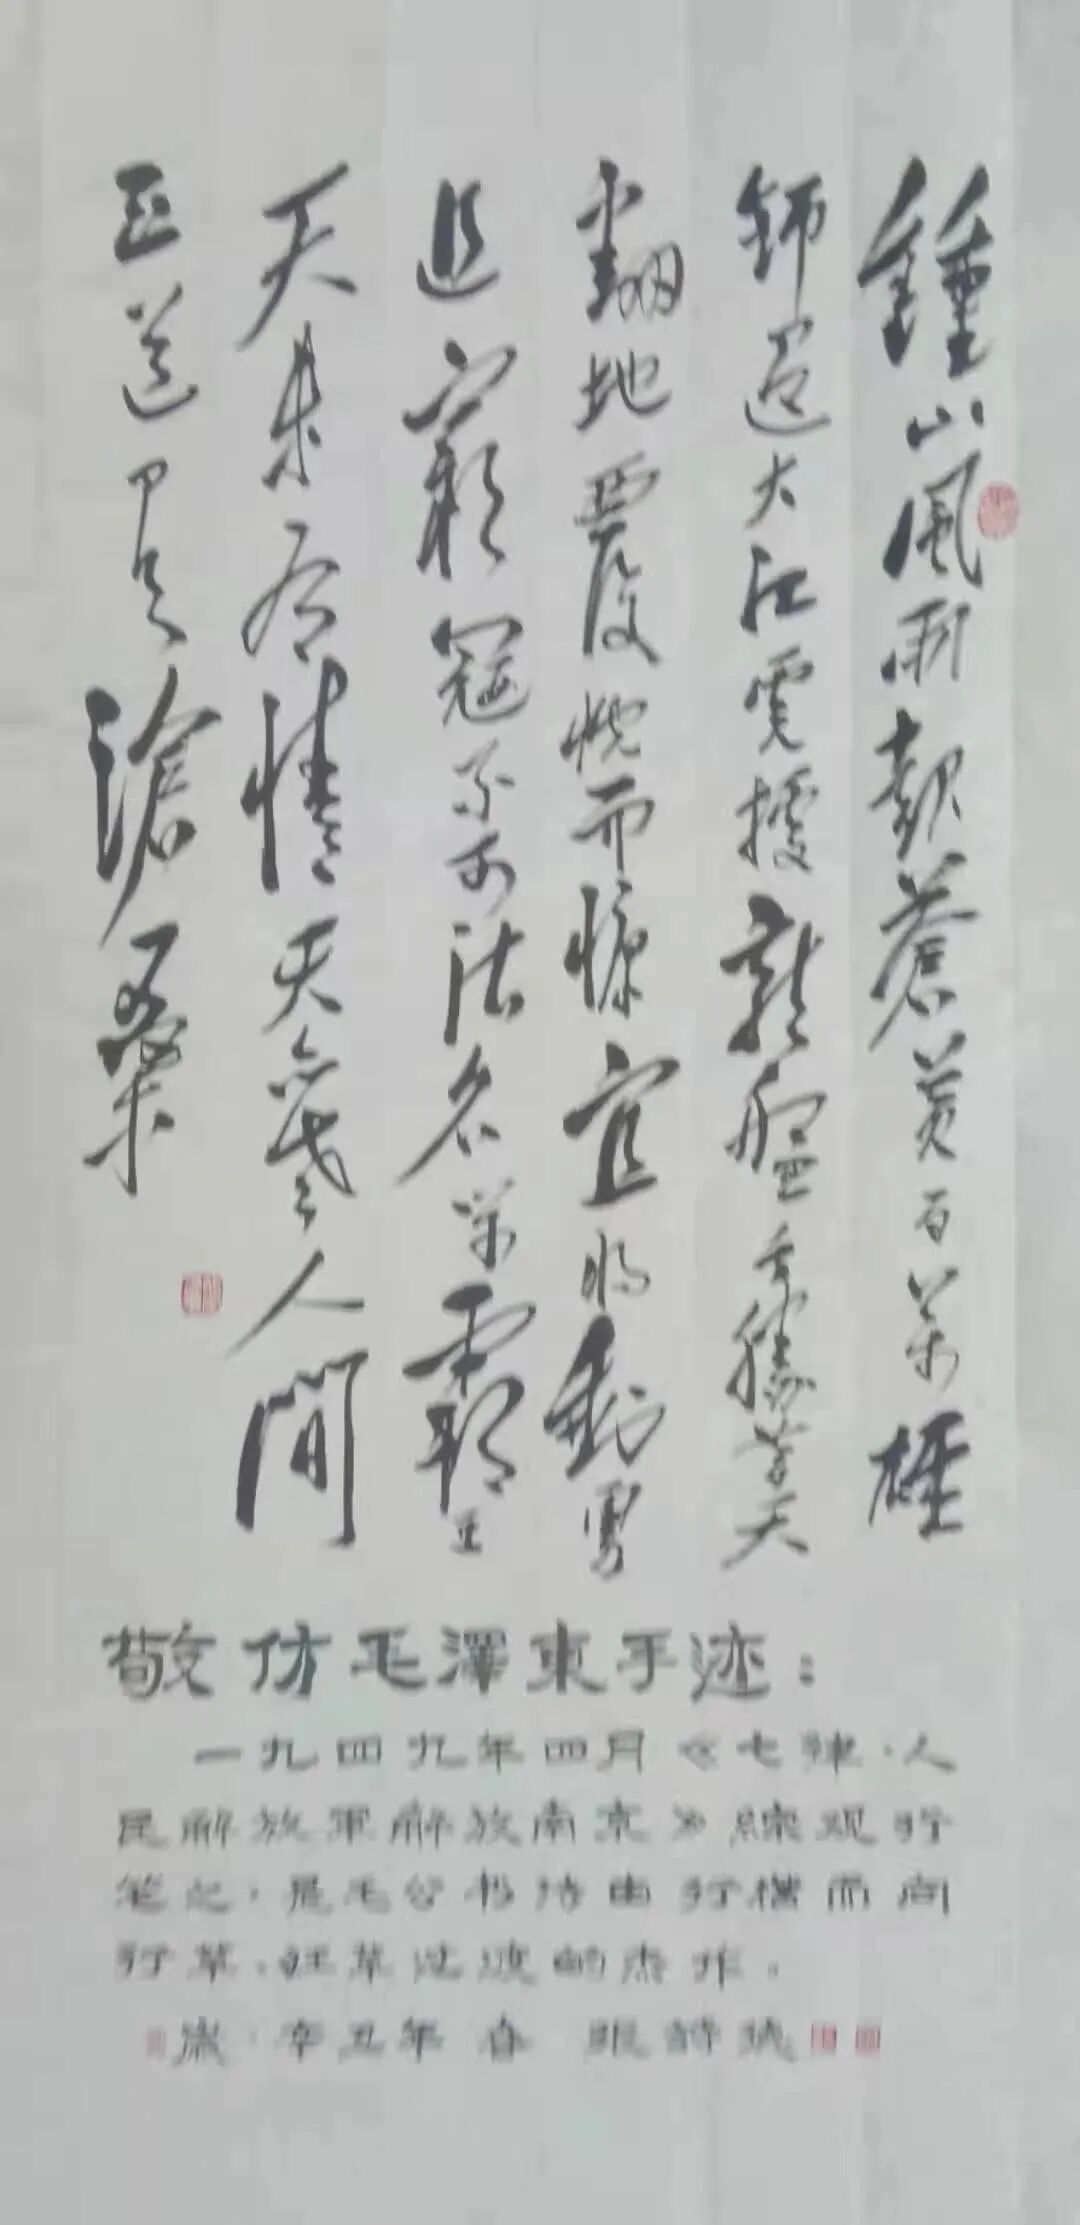 鍾山風雨起蒼黃百萬雄
師過大江虎據龍盤今勝昔天
翻地覆慨而慷宜將剩勇
追窮寇不可沽名學霸王
天若有情天亦老人間
正道是滄桑
敬仿毛澤東手迹：
一九四九年四月《七律·人
民解放军解放南京》綜观行
笔之，是毛公书诗由行楷而向
行草、狂草过渡的杰作。
辛丑年 春